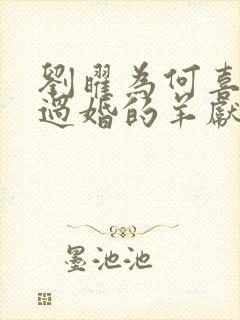 劉曜為何喜
過婚的羊獻
墨池池